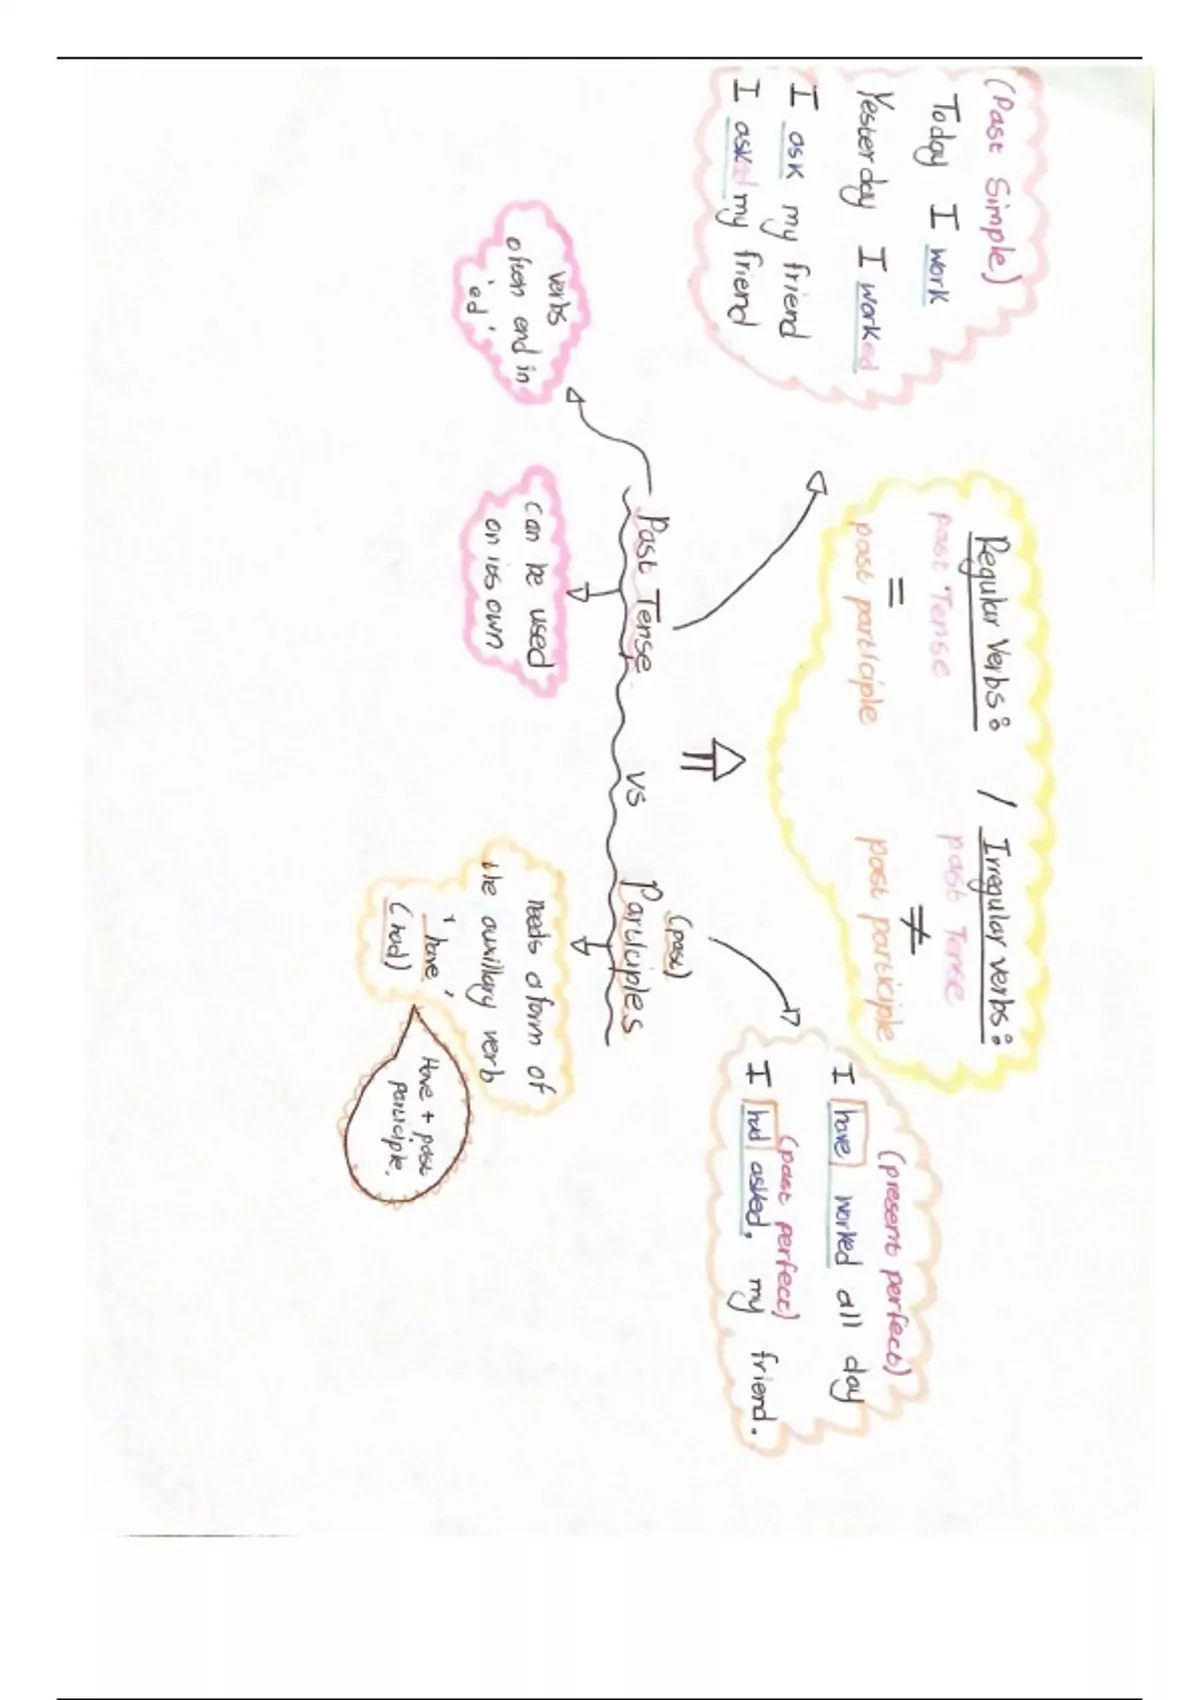 (Past Simple)
Today I work
Yesterday I worked
I ask my friend
I asked my friend
Regular Verbs:
past Tense
=
past participle
/
Irregular verbs:
past Tense
≠
past participle
(present perfect)
I have worked all day
(past perfect)
I had asked, my friend.
Past Tense vs Participles
(past)
verbs
often end in
'ed'
can be used
on its own
needs a form of
the auxillary verb
'have'
(had)
Have + past
participle.